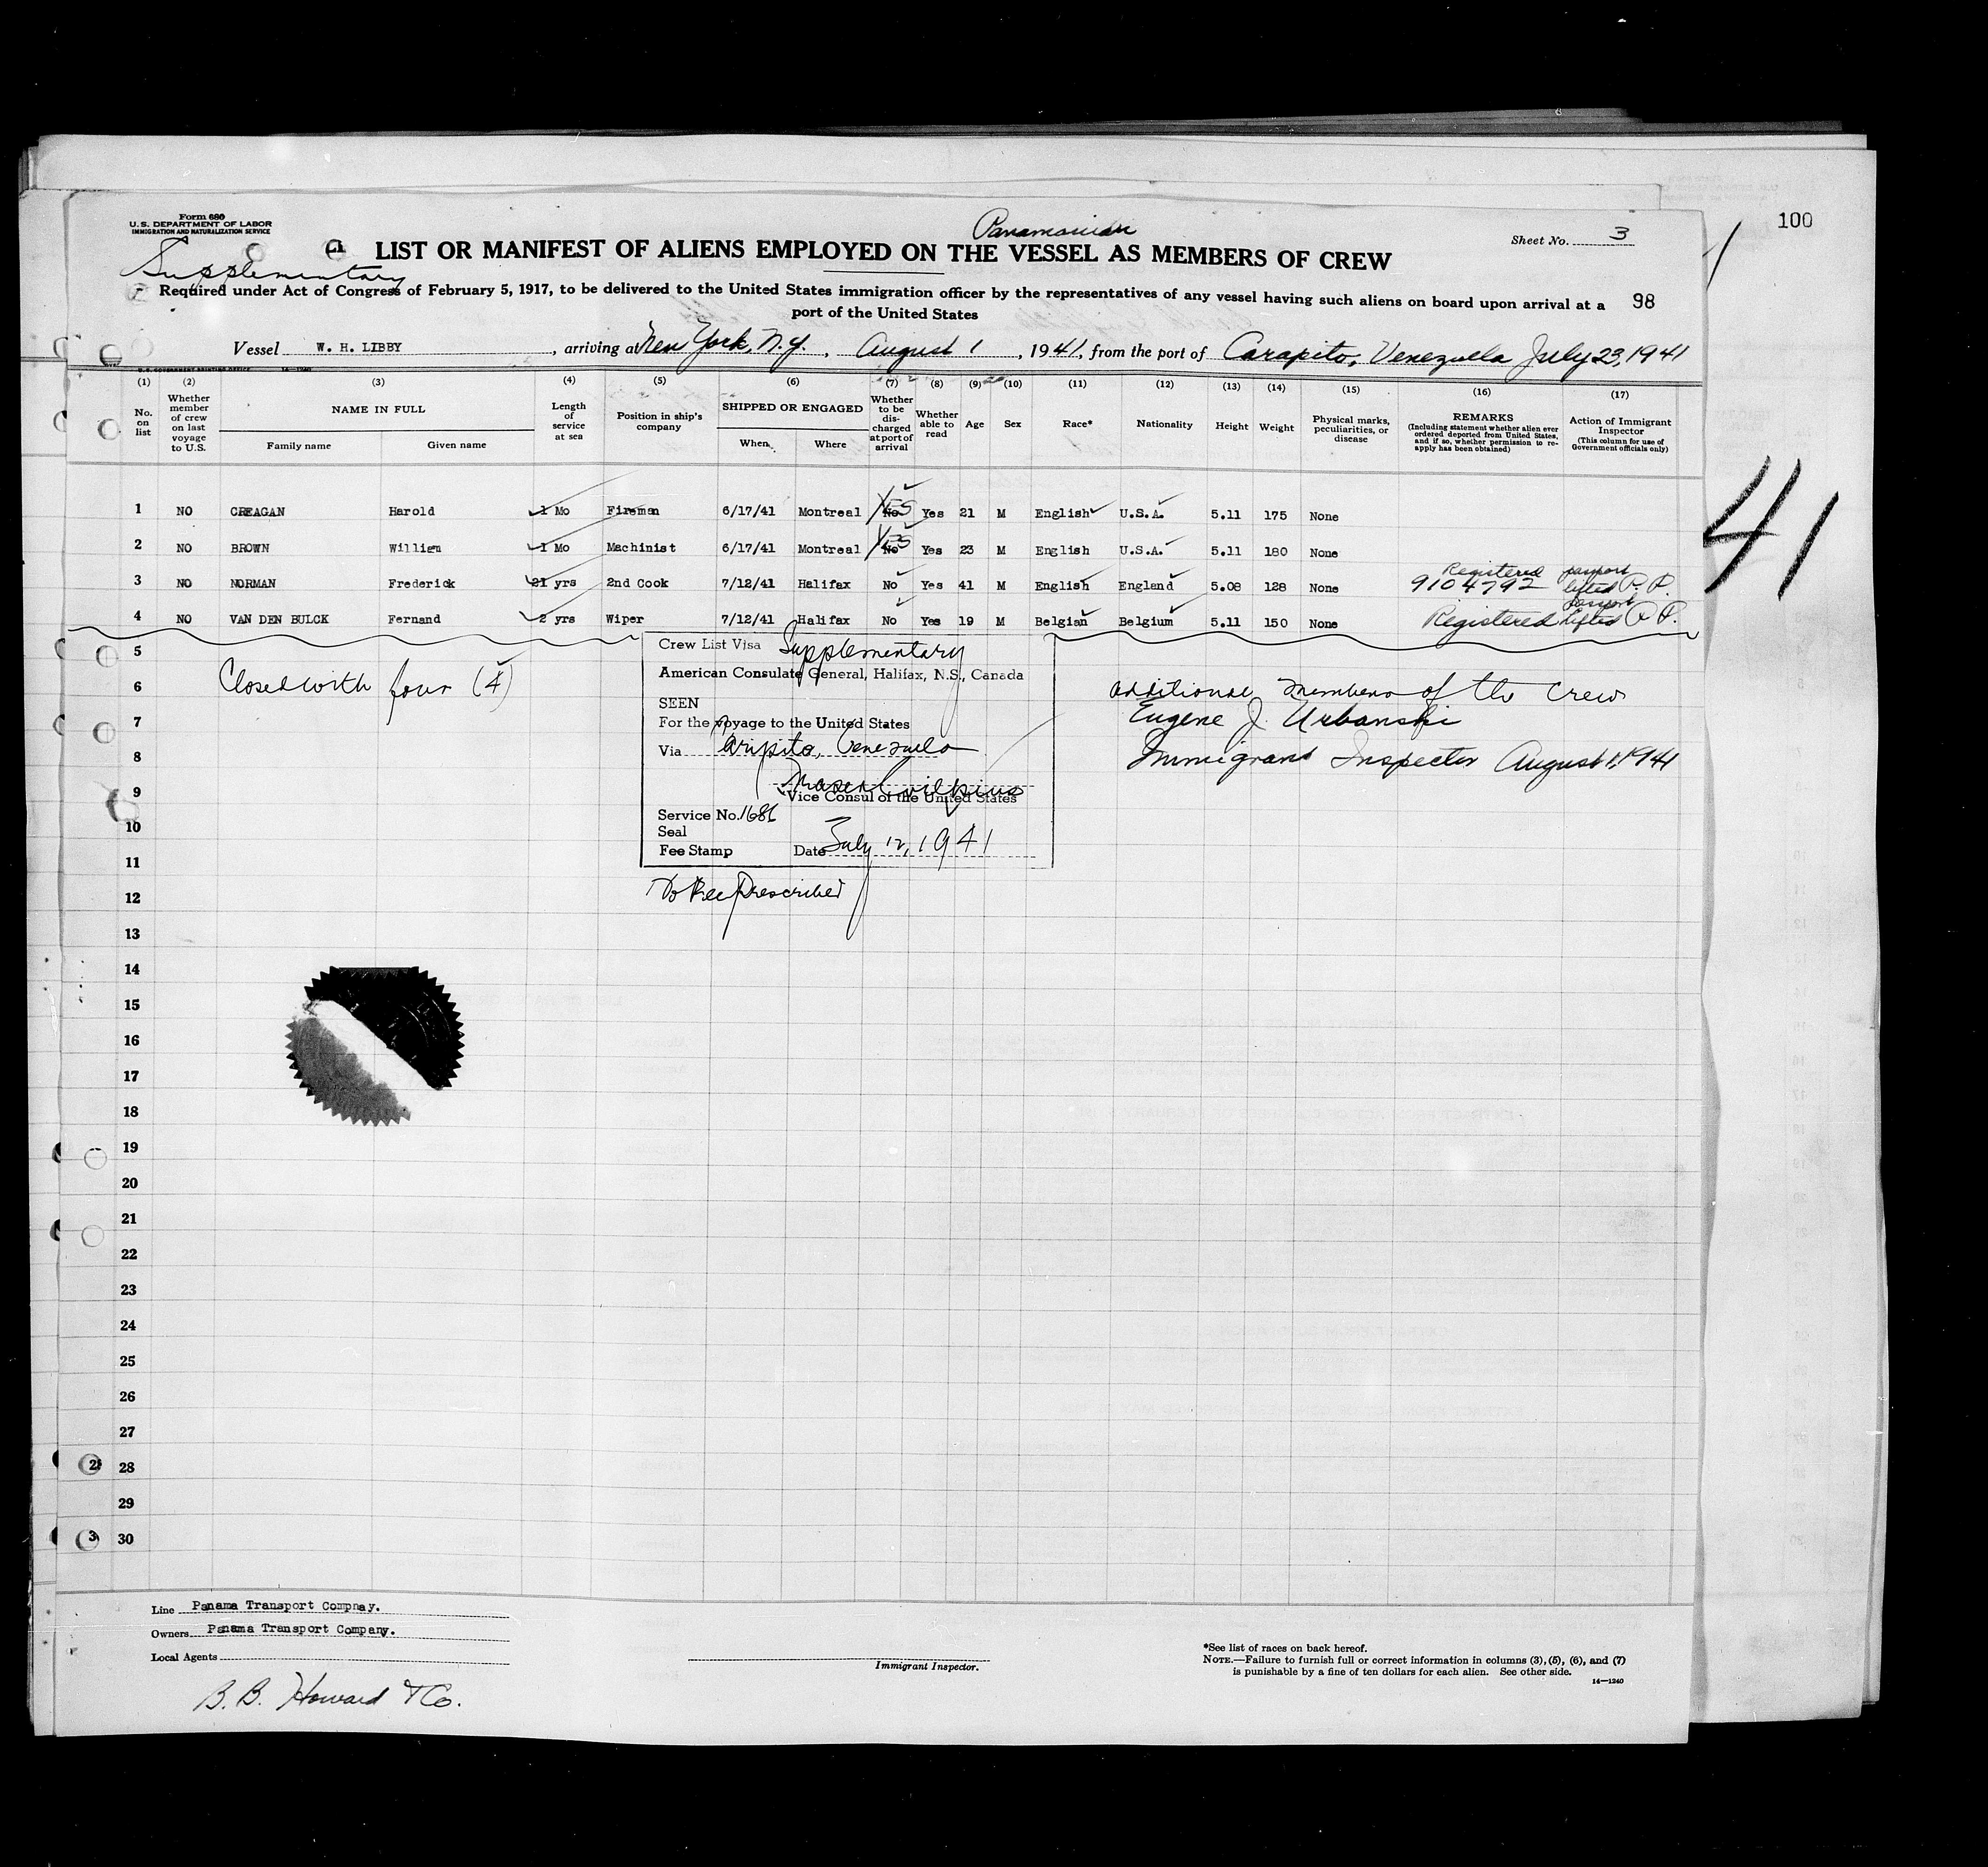 100
Form 680
U.S. DEPARTMENT OF LABOR
IMMIGRATION AND NATURALIZATION SERVICE
Panamanian
Sheet No. 3
LIST OR MANIFEST OF ALIENS EMPLOYED ON THE VESSEL AS MEMBERS OF CREW
Supplementary
Required under Act of Congress of February 5, 1917, to be delivered to the United States immigration officer by the representatives of any vessel having such aliens on board upon arrival at a
port of the United States
98
Vessel W. H. LIBBY, arriving at New York, N.Y., August 1, 1941, from the port of Carapito, Venezuela July 23, 1941
(1) (2) (3) (4) (5) (6) (7) (8) (9) (10) (11) (12) (13) (14) (15) (16) (17)
No. on list
Whether member of crew on last voyage to U.S.
NAME IN FULL
Family name Given name
Length of service at sea
Position in ship's company
SHIPPED OR ENGAGED
When Where
Whether to be discharged at port of arrival
Whether able to read
Age
Sex
Race*
Nationality
Height
Weight
Physical marks, peculiarities, or disease
REMARKS
(Including statement whether alien ever ordered deported from United States, and if so, whether permission to re-apply has been obtained)
Action of Immigrant Inspector
(This column for use of Government officials only)
1 NO CREAGAN Harold 1 Mo Fireman 6/17/41 Montreal No YES Yes 21 M English U.S.A. 5.11 175 None
2 NO BROWN Willien 1 Mo Machinist 6/17/41 Montreal No YES Yes 23 M English U.S.A. 5.11 180 None
3 NO NORMAN Frederick 21 yrs 2nd Cook 7/12/41 Halifax No Yes 41 M English England 5.08 128 None Registered 9104792 passport lifted P. P.
4 NO VAN DEN BULCK Fernand 2 yrs Wiper 7/12/41 Halifax No Yes 19 M Belgian Belgium 5.11 150 None Registered passport lifted P P.
5
6
7
8
9
10
11
12
13
14
15
16
17
18
19
20
21
22
23
24
25
26
27
28
29
30
Closed with four (4)
Crew List Visa Supplementary
American Consulate General, Halifax, N.S., Canada
SEEN
For the voyage to the United States
Via Caripito, Venezuela
Vice Consul of the United States
Service No. 1686
Seal
Fee Stamp Date July 12, 1941
No Fee Prescribed
additional members of the crew
Eugene J. Urbanski
Immigrant Inspector August 1, 1941
41
Line Panama Transport Compnay.
Owners Panama Transport Company.
Local Agents
B. B. Howard & Co.
Immigrant Inspector.
*See list of races on back hereof.
NOTE.—Failure to furnish full or correct information in columns (3), (5), (6), and (7)
is punishable by a fine of ten dollars for each alien. See other side.
14—1240